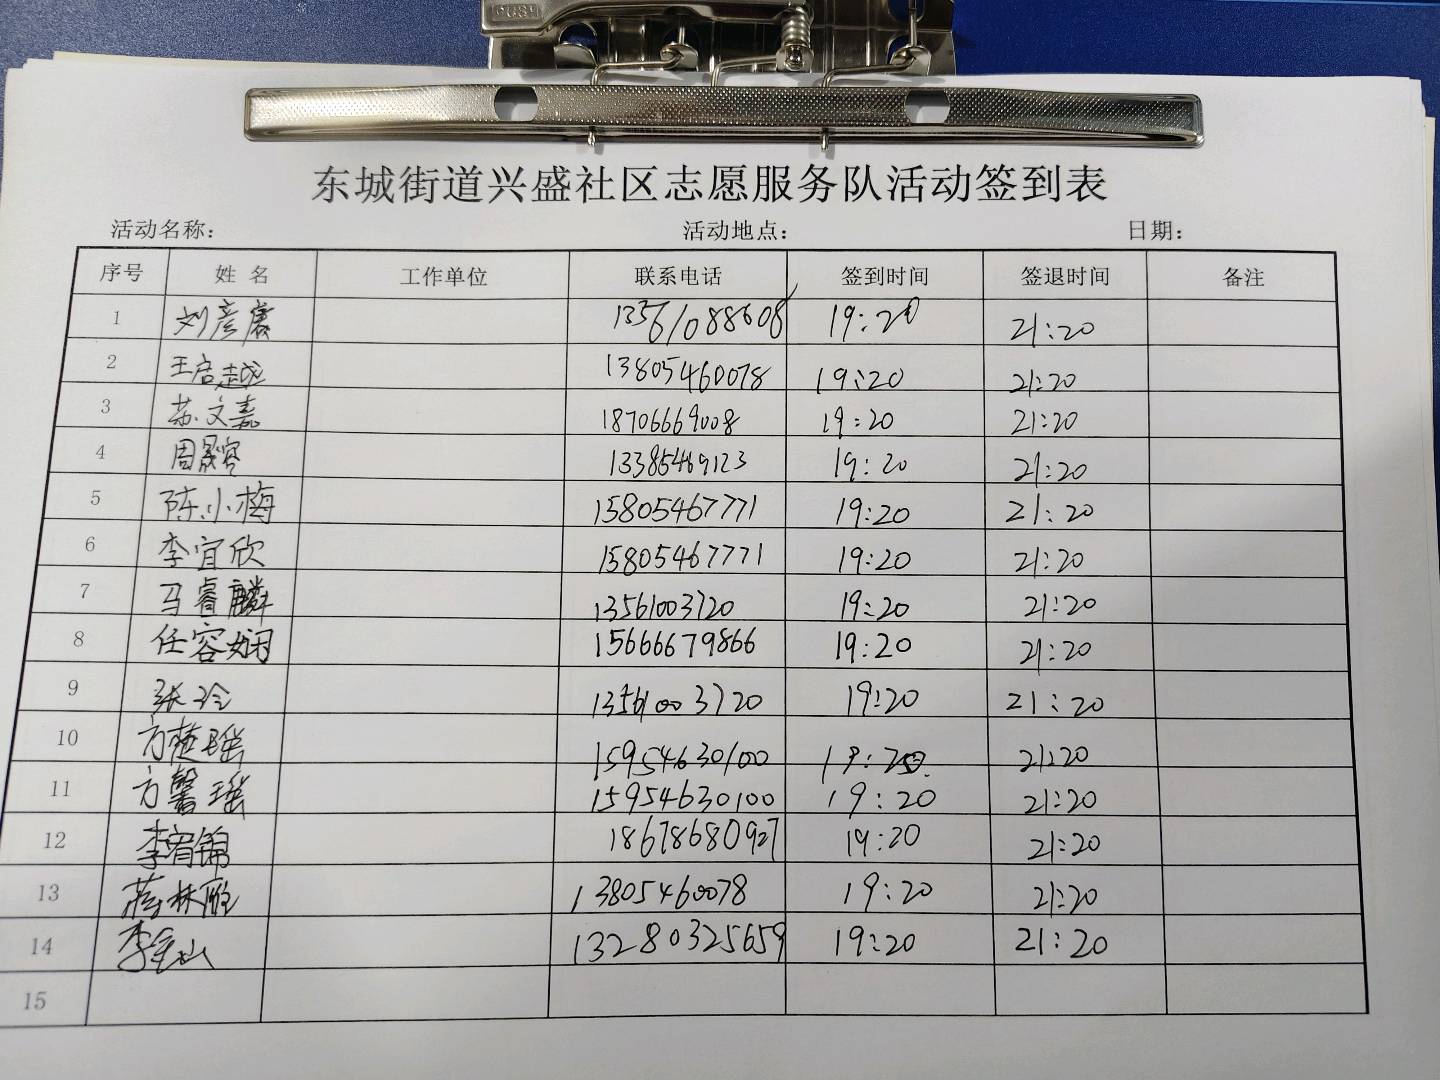 PUSH
东城街道兴盛社区志愿服务队活动签到表
活动名称： 活动地点： 日期：
序号 姓 名 工作单位 联系电话 签到时间 签退时间 备注
1 刘彦廣 13561088608 19:20 21:20
2 王启越 13805460078 19:20 21:20
3 苏文嘉 18706669008 19:20 21:20
4 周晟容 13385469123 19:20 21:20
5 陈小梅 15805467771 19:20 21:20
6 李宜欣 15805467771 19:20 21:20
7 马睿麟 13561003720 19:20 21:20
8 任容娴 15666679866 19:20 21:20
9 张玲 13561003720 19:20 21:20
10 方 瑶 15954630100 19:20 21:20
11 方馨瑶 15954630100 19:20 21:20
12 李宥锦 18678680927 19:20 21:20
13 蒋林 13805460078 19:20 21:20
14 李 山 13280325659 19:20 21:20
15